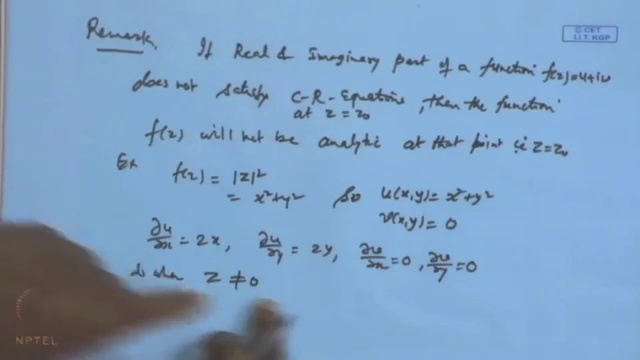 © CET
I.I.T. KGP
Remark If Real & Imaginary part of a function f(z)=u+iv
does not satisfy C-R-Equations, then the function
at z=z₀
f(z) will not be analytic at that point i.e. z=z₀
Ex f(z) = |z|²
= x²+y² So u(x,y)= x²+y²
v(x,y)=0
∂u/∂x = 2x, ∂u/∂y = 2y, ∂v/∂x =0, ∂v/∂y =0
when z ≠ 0
NPTEL